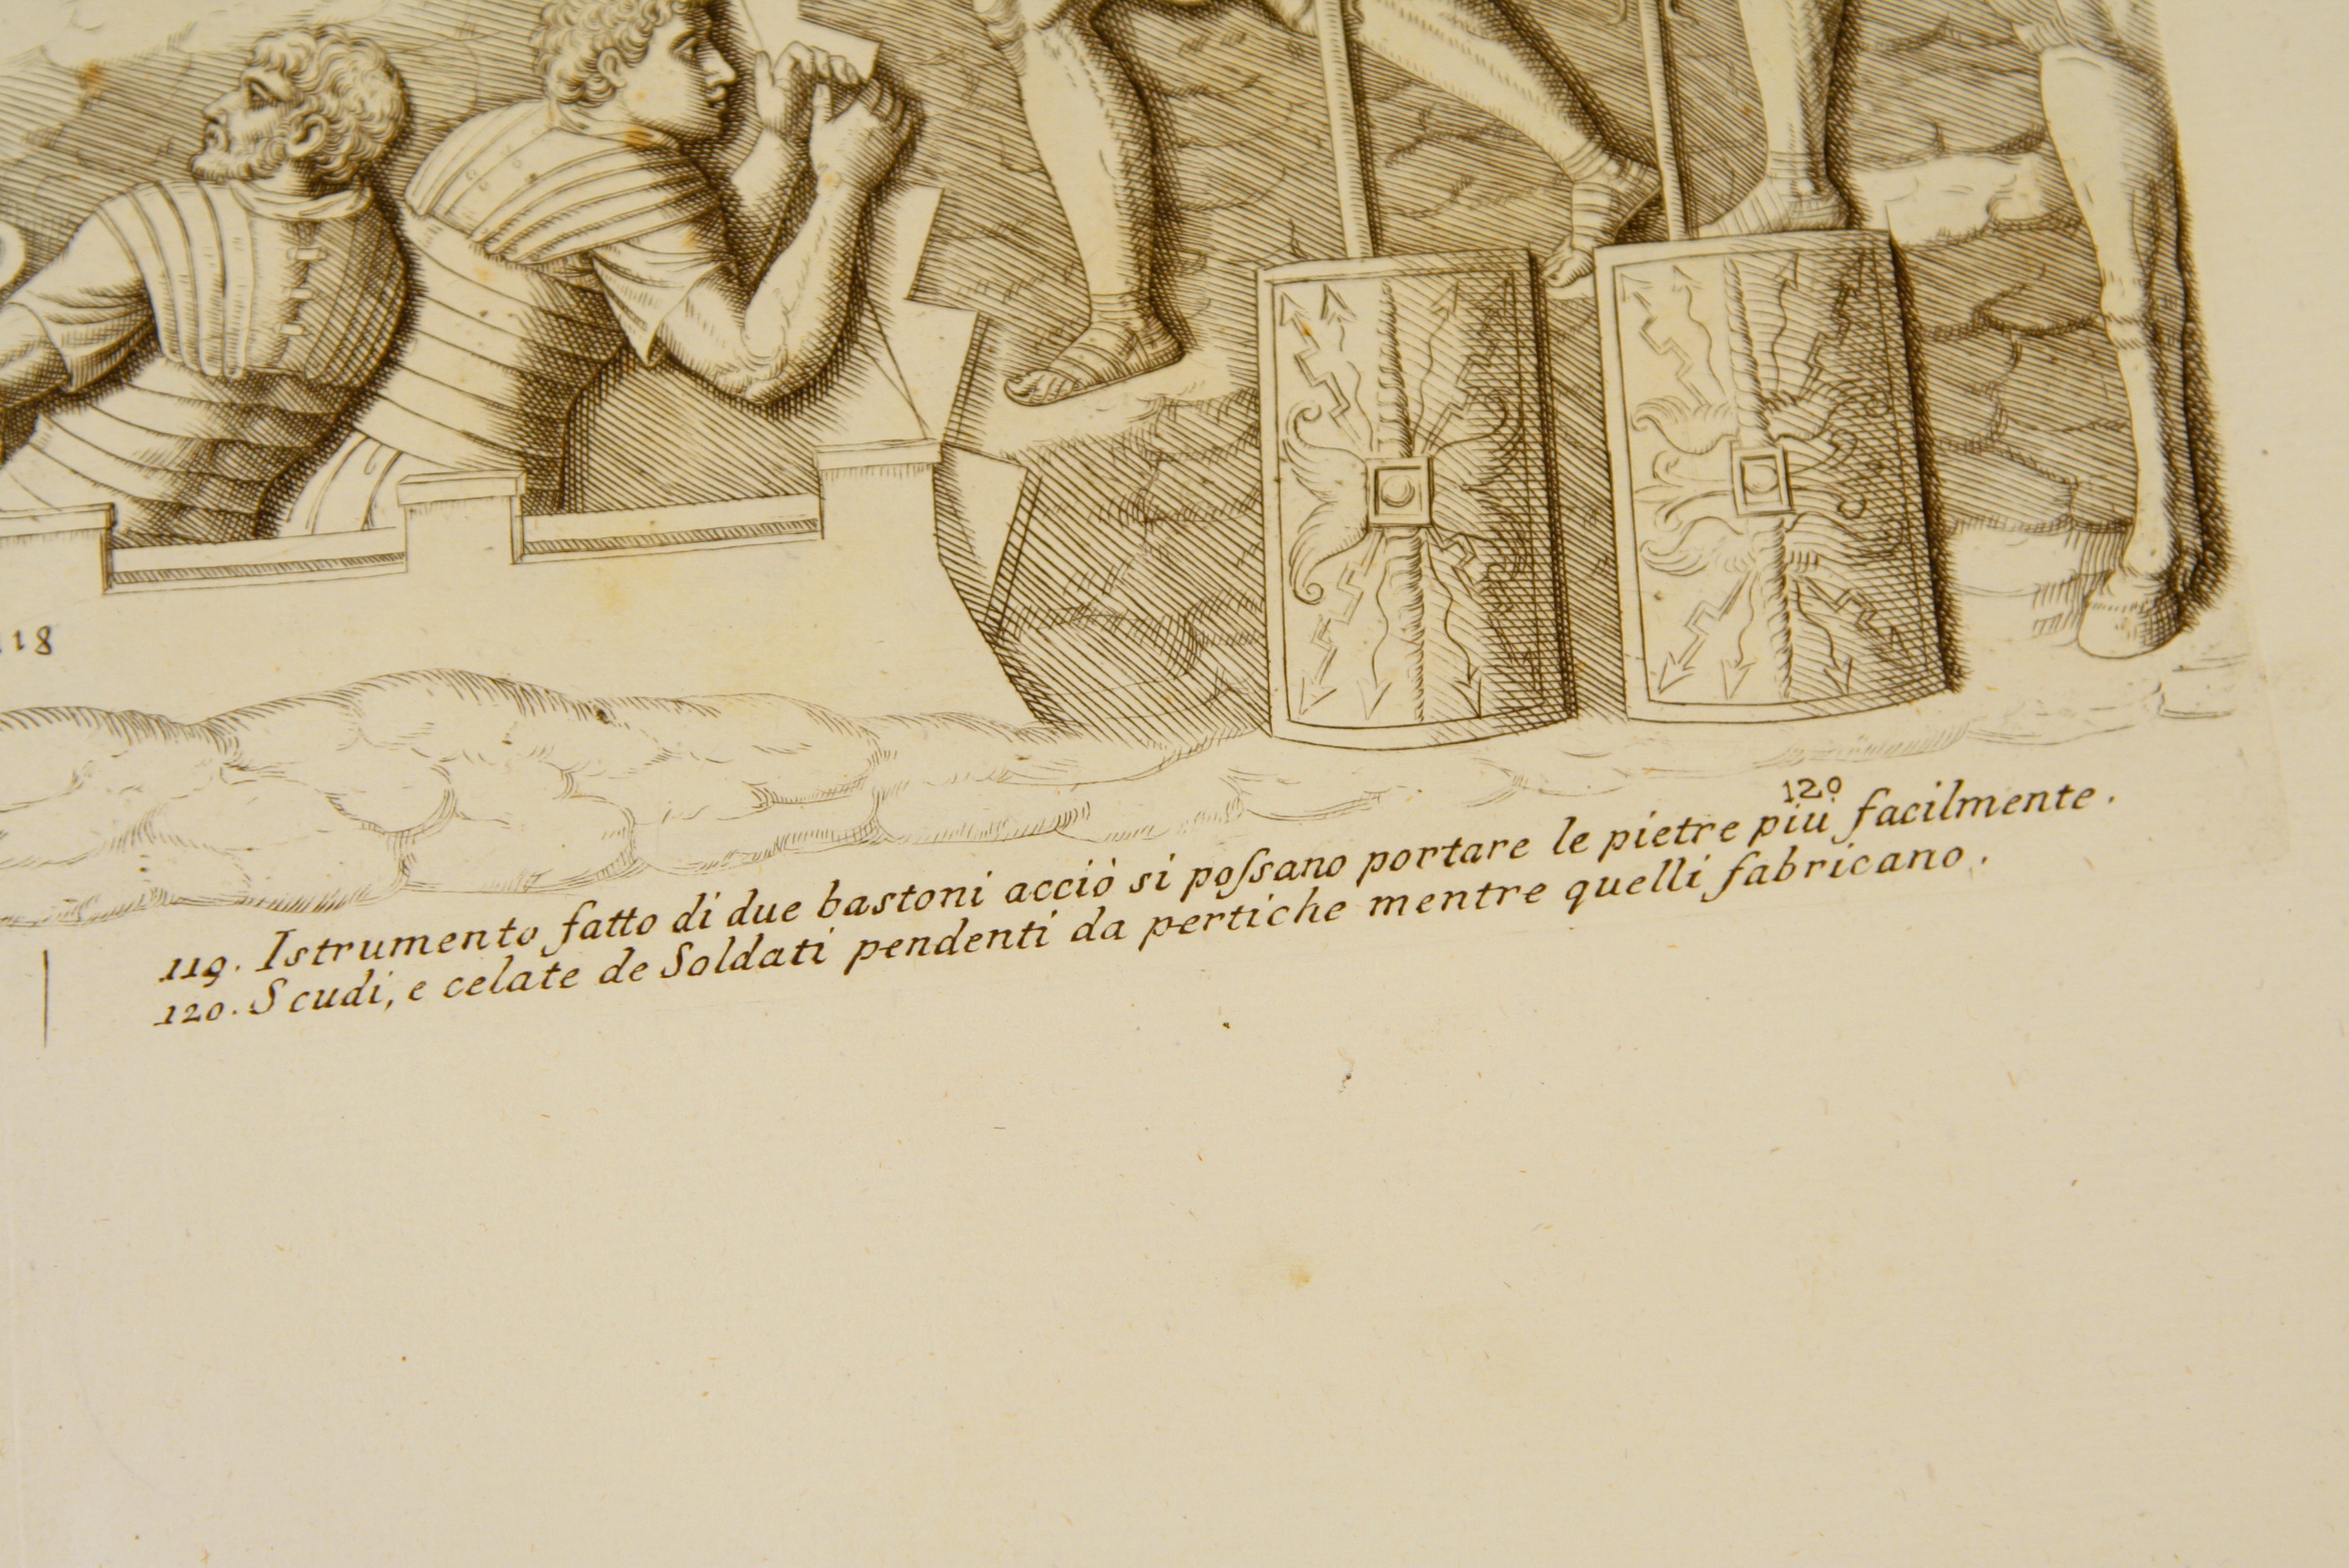 118
120
119. Istrumento fatto di due bastoni acciò si poſsano portare le pietre più facilmente.
120. Scudi, e celate de Soldati pendenti da pertiche mentre quelli fabricano.